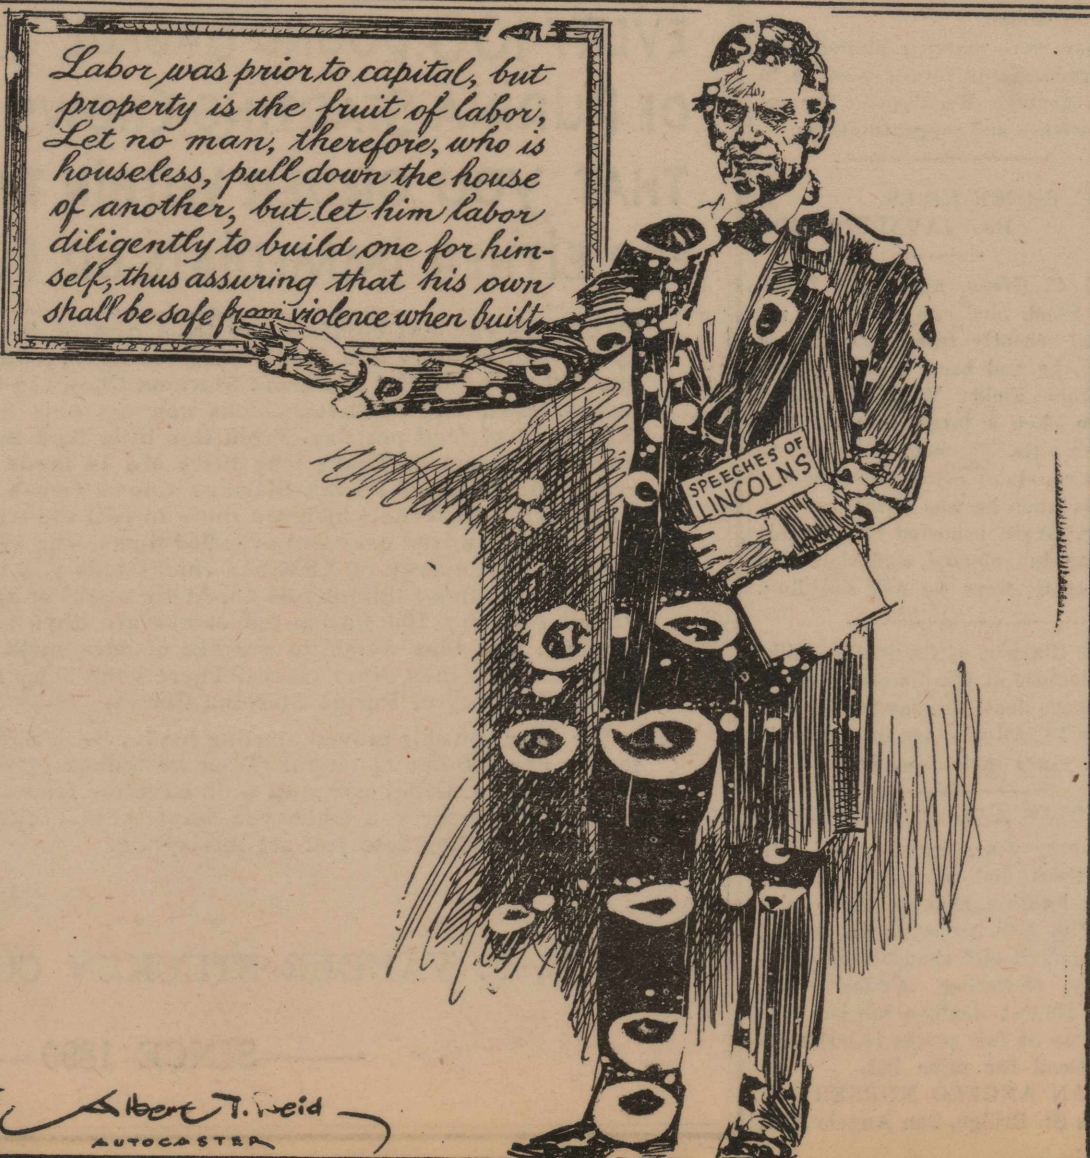 Labor was prior to capital, but
property is the fruit of labor,
Let no man, therefore, who is
houseless, pull down the house
of another, but let him labor
diligently to build one for him-
self, thus assuring that his own
shall be safe from violence when built
SPEECHES OF
LINCOLNS
Albert T. Reid
AUTOCASTER